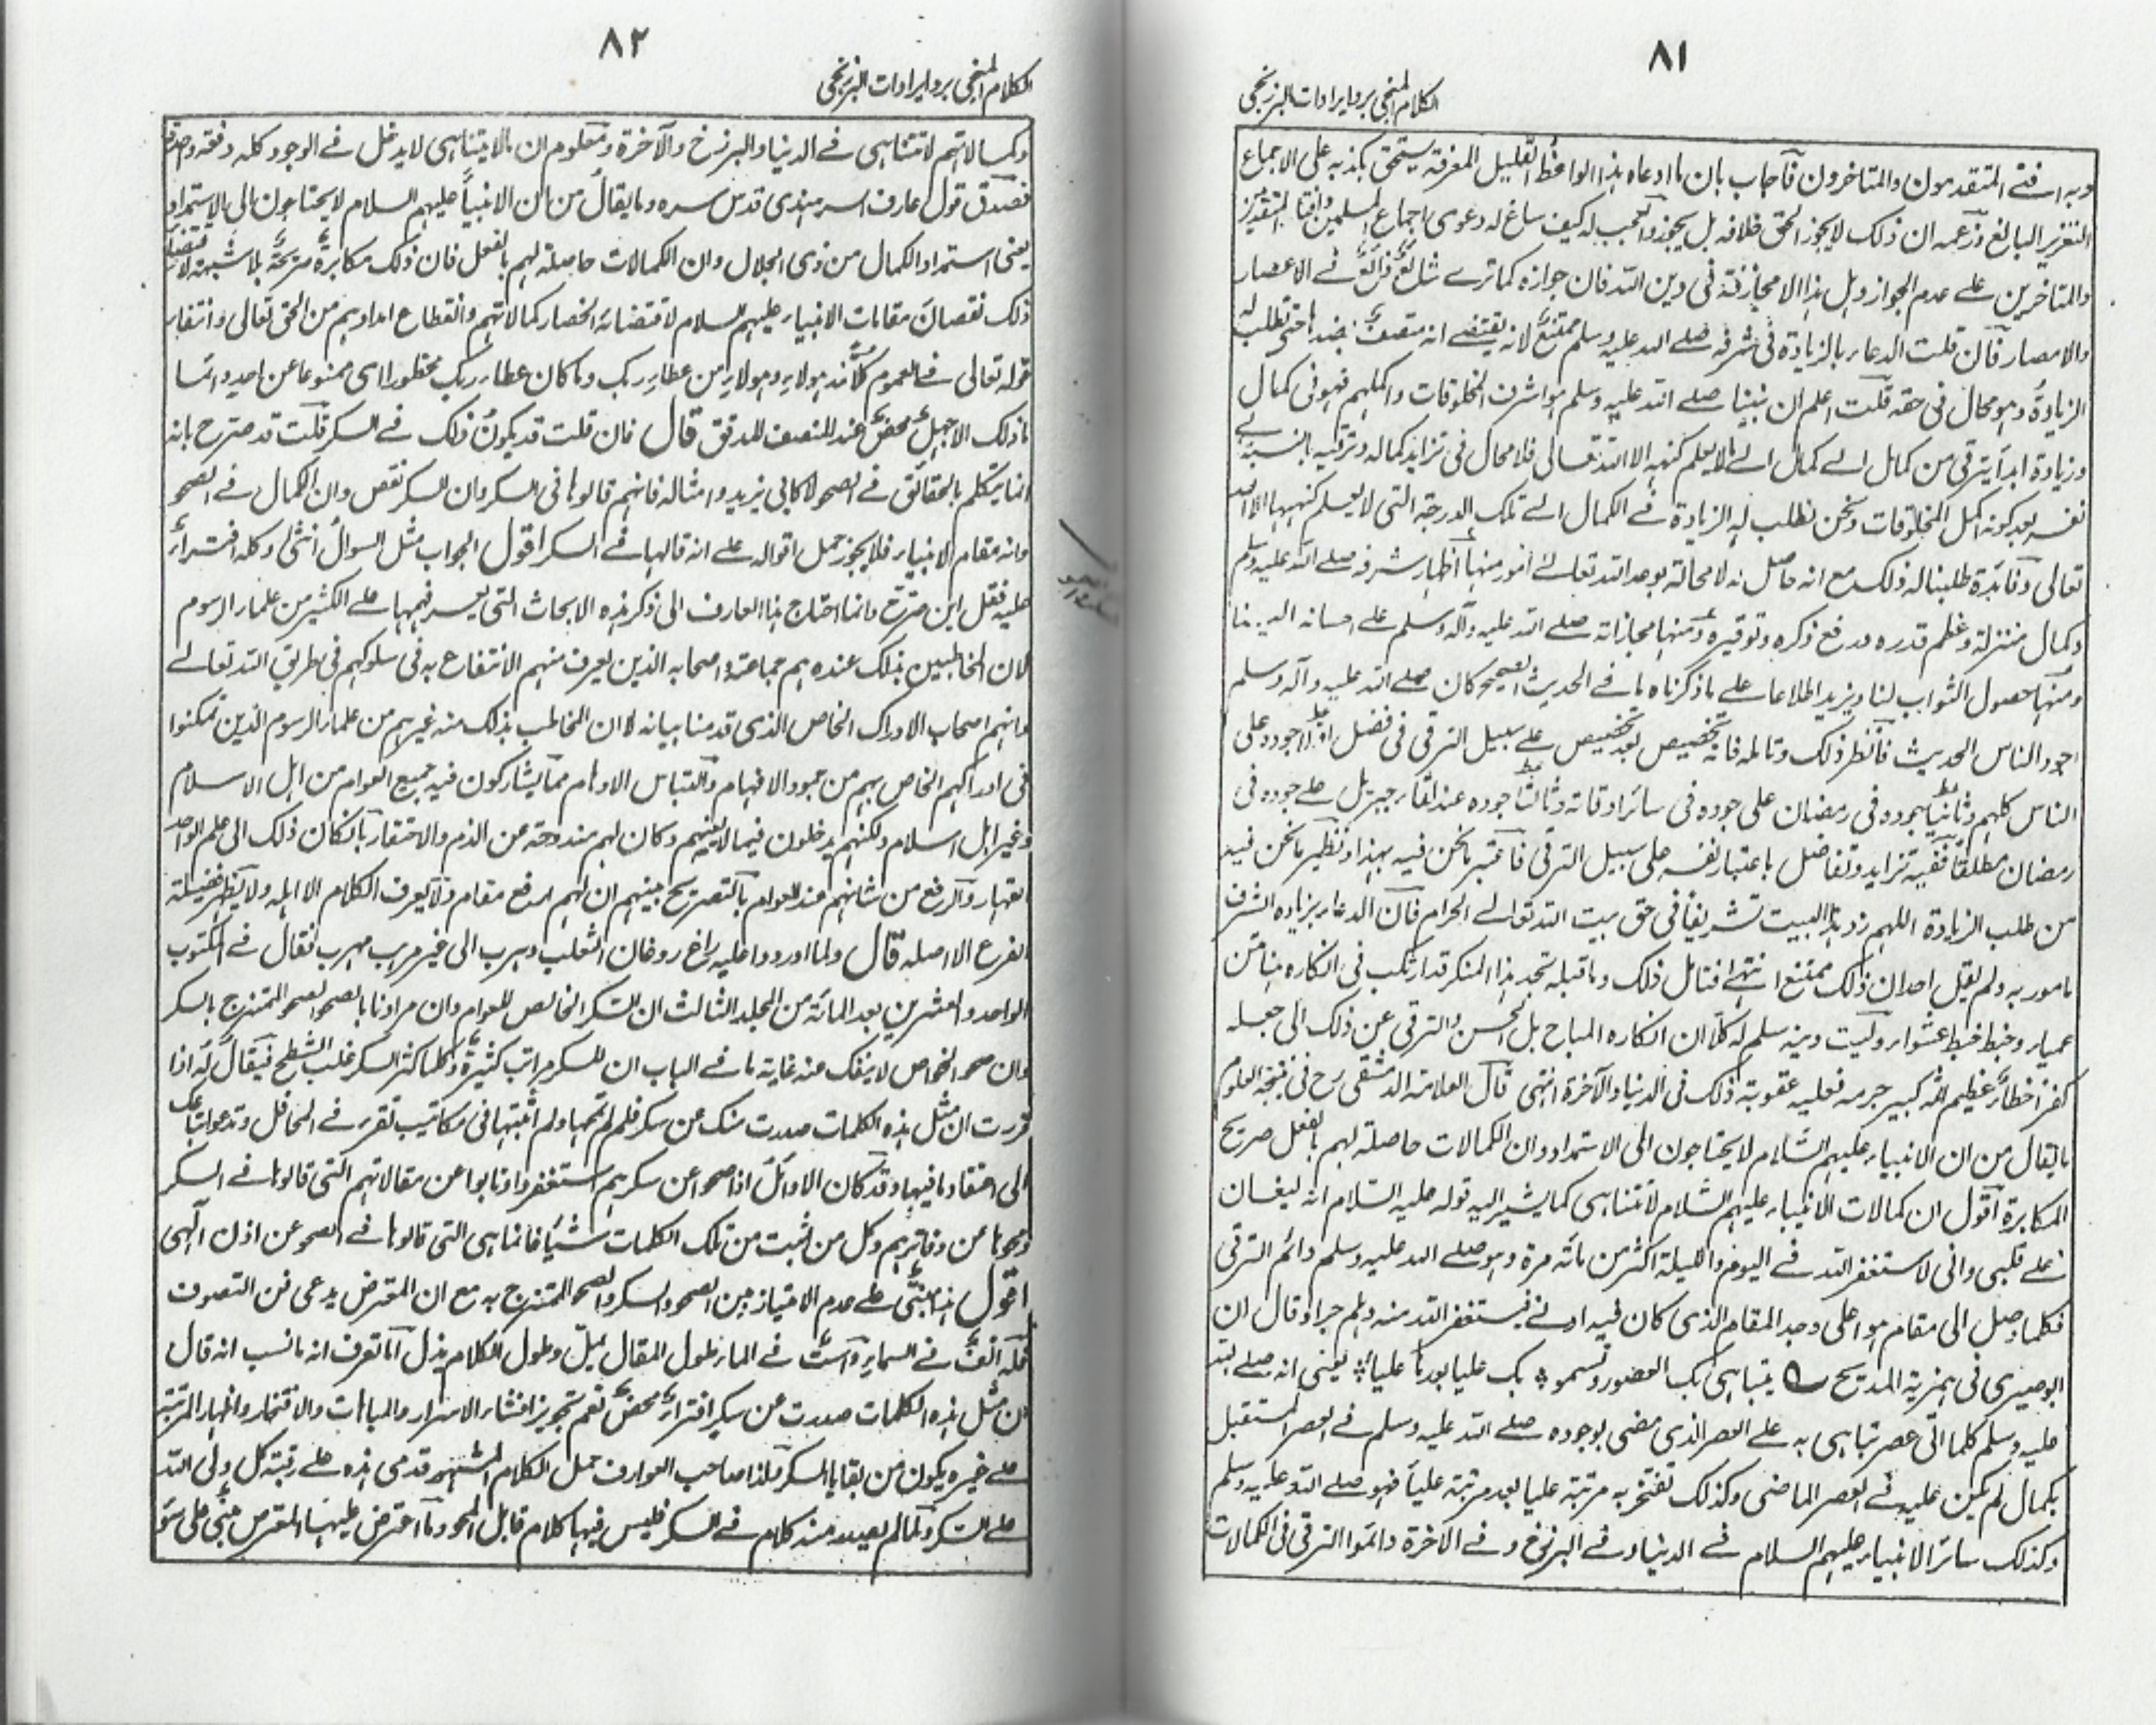 ٨١
الكلام المنجي برد ايرادات البرزنجي
وبه افتى المتقدمون والمتاخرون فآجاب بان ما ادعاه هذا الواعظ القليل المعرفة يستحق بكذبه على الاجماع
التعزير البالغ وزعمه ان ذلك لا يجوز الحق خلافه بل يجوز والعجب له كيف ساغ له دعوى اجماع المسلمين وافتاء المتقدمين
والمتاخرين على عدم الجواز وهل هذا الا مجازفة في دين الله فان جوازه كما ترى شائع ذائع في الاعصار
والامصار فان قلت الدعاء بالزيادة في شرفه صلى الله عليه وسلم ممتنع لانه يقتضي انه متصف بضدها حتى تطلب له
الزيادة وهو محال في حقه قلت اعلم ان نبينا صلى الله عليه وسلم هو اشرف المخلوقات واكملهم فهو في كمال
وزيادة ابدا يترقى من كمال الى كمال الى ما لا يعلم كنهه الا الله تعالى فلا محال في تزايد كماله وترقيه بالنسبة الى
نفسه بعد كونه اكمل المخلوقات ونحن نطلب له الزيادة في الكمال الى تلك الدرجة التي لا يعلم كنهها الا الله
تعالى وفائدة طلبنا له ذلك مع انه حاصل له لا محالة بوعد الله تعالى امور منها اظهار شرفه صلى الله عليه وسلم
وكمال منزلته وعظم قدره ورفع ذكره وتوقيره ومنها مجازاته صلى الله عليه وآله وسلم على احسانه الينا
ومنها حصول الثواب لنا ويزيد اطلاعا على ما ذكرناه ما في الحديث الصحيح كان صلى الله عليه وآله وسلم
اجود الناس الحديث فانظر ذلك وتامله فانه تخصيص بعد تخصيص على سبيل الترقي في فضل اولا جوده على
الناس كلهم وثانيا بجوده في رمضان على جوده في سائر اوقاته وثالثا جوده عند لقاء جبريل على جوده في
رمضان مطلقا ففيه تزايد وتفاضل باعتبار نفسه على سبيل الترقي فاعتبر ما نحن فيه بهذا ونظير ما نحن فيه
من طلب الزيادة اللهم زد هذا البيت تشريفا في حق بيت الله تعالى الحرام فان الدعاء بزيادة الشرف
مامور به ولم يقل احد ان ذلك ممتنع انتهى فتامل ذلك وما قبله تجد هذا المنكر قد ارتكب في انكاره هنا متن
عمياء وخبط خبط عشواء وليت دينه سلم له كلا ان انكاره المباح بل الحسن والترقي عن ذلك الى جعله
كفرا خطاء عظيم اثم كبير جرمه فعليه عقوبة ذلك في الدنيا والآخرة انتهى قال العلامة الدمشقي رح في نتيجة العلوم
ما يقال من ان الانبياء عليهم السلام لا يحتاجون الى الاستمداد وان الكمالات حاصلة لهم بالفعل صريح
المكابرة اقول ان كمالات الانبياء عليهم السلام لا تتناهى كما يشير اليه قوله عليه السلام انه ليغان
على قلبي واني لاستغفر الله في اليوم والليلة اكثر من مائة مرة وهو صلى الله عليه وسلم دائم الترقي
فكلما وصل الى مقام هو اعلى وجد المقام الذي كان فيه ادنى فيستغفر الله منه وهلم جرا وقال ان
ابوصيري في همزية المديح تتباهى بك العصور وتسمو بك علياء بعدها علياء يعني انه صلى الله
عليه وسلم كلما اتى عصر تباهى به على العصر الذي مضى بوجوده صلى الله عليه وسلم في العصر المستقبل
بكمال لم يكن عليه في العصر الماضي وكذلك تفتخر به مرتبة عليا بعد مرتبة عليا فهو صلى الله عليه وسلم
وكذلك سائر الانبياء عليهم السلام في الدنيا وفي البرزخ وفي الآخرة دائموا الترقي في الكمالات
٨٢
الكلام المنجي برد ايرادات البرزنجي
وكمالاتهم لا تتناهى في الدنيا والبرزخ والآخرة ومعلوم ان ما لا يتناهى لا يدخل في الوجود كله دفعة واحدة
فصدق قول عارف السرهندي قدس سره وما يقال من ان الانبياء عليهم السلام لا يحتاجون الى الاستمداد
يعني استمداد الكمال من ذي الجلال وان الكمالات حاصلة لهم بالفعل فان ذلك مكابرة صريحة بلا شبهة لاقتضاء
ذلك نقصان مقامات الانبياء عليهم السلام لاقتضائه انحصار كمالاتهم وانقطاع امدادهم من الحق تعالى وانتفاء
قوله تعالى في العموم كلا نمد هؤلاء وهؤلاء من عطاء ربك وما كان عطاء ربك محظورا اى ممنوعا عن احد وانما
ما ذلك الا جهل محض عند المنصف المدقق قال فان قلت قد يكون ذلك في السكر قلت قد صرح بانه
انما يتكلم بالحقائق في الصحو لا كابي يزيد وامثاله فانهم قالوها في السكر وان السكر نقص وان الكمال في الصحو
وانه مقام الانبياء فلا يجوز حمل اقواله على انه قالها في السكر اقول الجواب مثل السوال انثى وكله افتراء
عليه فقل اين صرح وانما احتاج هذا العارف الى ذكر هذه الابحاث التي يعسر فهمها على الكثير من علماء الرسوم
لان المخاطبين بذلك عنده هم جماعة واصحابه الذين يعرف منهم الانتفاع به في سلوكهم في طريق الله تعالى
وانهم اصحاب الادراك الخاص الذي قدمنا بيانه لا ان المخاطب بذلك منه غيرهم من علماء الرسوم الذين تمكنوا
في ادراكهم الخاص بهم من جمود الافهام والتباس الاوهام مما يشاركون فيه جميع العوام من اهل الاسلام
وغير اهل اسلام ولكنهم يدخلون فيما لا يعنيهم وكان لهم مندوحة عن الذم والاحتقار باتكال ذلك الى علم الواحد
القهار والرفع من شانهم عند العوام بالتصريح بينهم ان لهم ارفع مقام ولا يعرف الكلام الا اهله ولا يظهر فضيلة
الفرع الا اصله قال ولما اوردوا عليه راغ روغان الثعلب وهرب الى غير مهرب مهرب فقال في المكتوب
الواحد والعشرين بعد المائة من المجلد الثالث ان السكر الخالص للعوام وان مرادنا بالصحو الصحو الممتزج بالسكر
وان صحو الخواص لا ينفك منه غاية ما في الباب ان للسكر مراتب كثيرة وكلما كثر السكر غلب الشطح فيقال له اذا
قررت ان مثل هذه الكلمات صدرت منك عن سكر فلم لم تمحها ولم اثبتها في مكاتيب تقرء في المحافل وتدعو اتباعك
الى اعتقاد ما فيها وقد كان الاوائل اذا صحوا عن سكرهم استغفروا وتابوا عن مقالاتهم التي قالوها في السكر
ومحوها من دفاترهم وكل من اثبت من تلك الكلمات شيئا فانما هي التي قالوها في الصحو عن اذن الهي
اقول هذا مبني على عدم الامتياز بين الصحو والسكر والصحو الممتزج به مع ان المعترض يدعي فن التصوف
فله انف في السماء واست في الماء طول المقال يمل وطول الكلام يذل اما تعرف انه ما نسب انه قال
ان مثل هذه الكلمات صدرت عن سكر افتراء محض نعم تجويز افشاء الاسرار والمباهات والافتخار واظهار المرتبة
على غيره يكون من بقايا السكر فلذا صاحب العوارف حمل الكلام المشتهر قدمي هذه على رقبة كل ولي الله
على السكر ولما لم يصدر منه كلام في السكر فليس فيها كلام قابل المحو وما اعترض عليها المعترض مبني على سوء